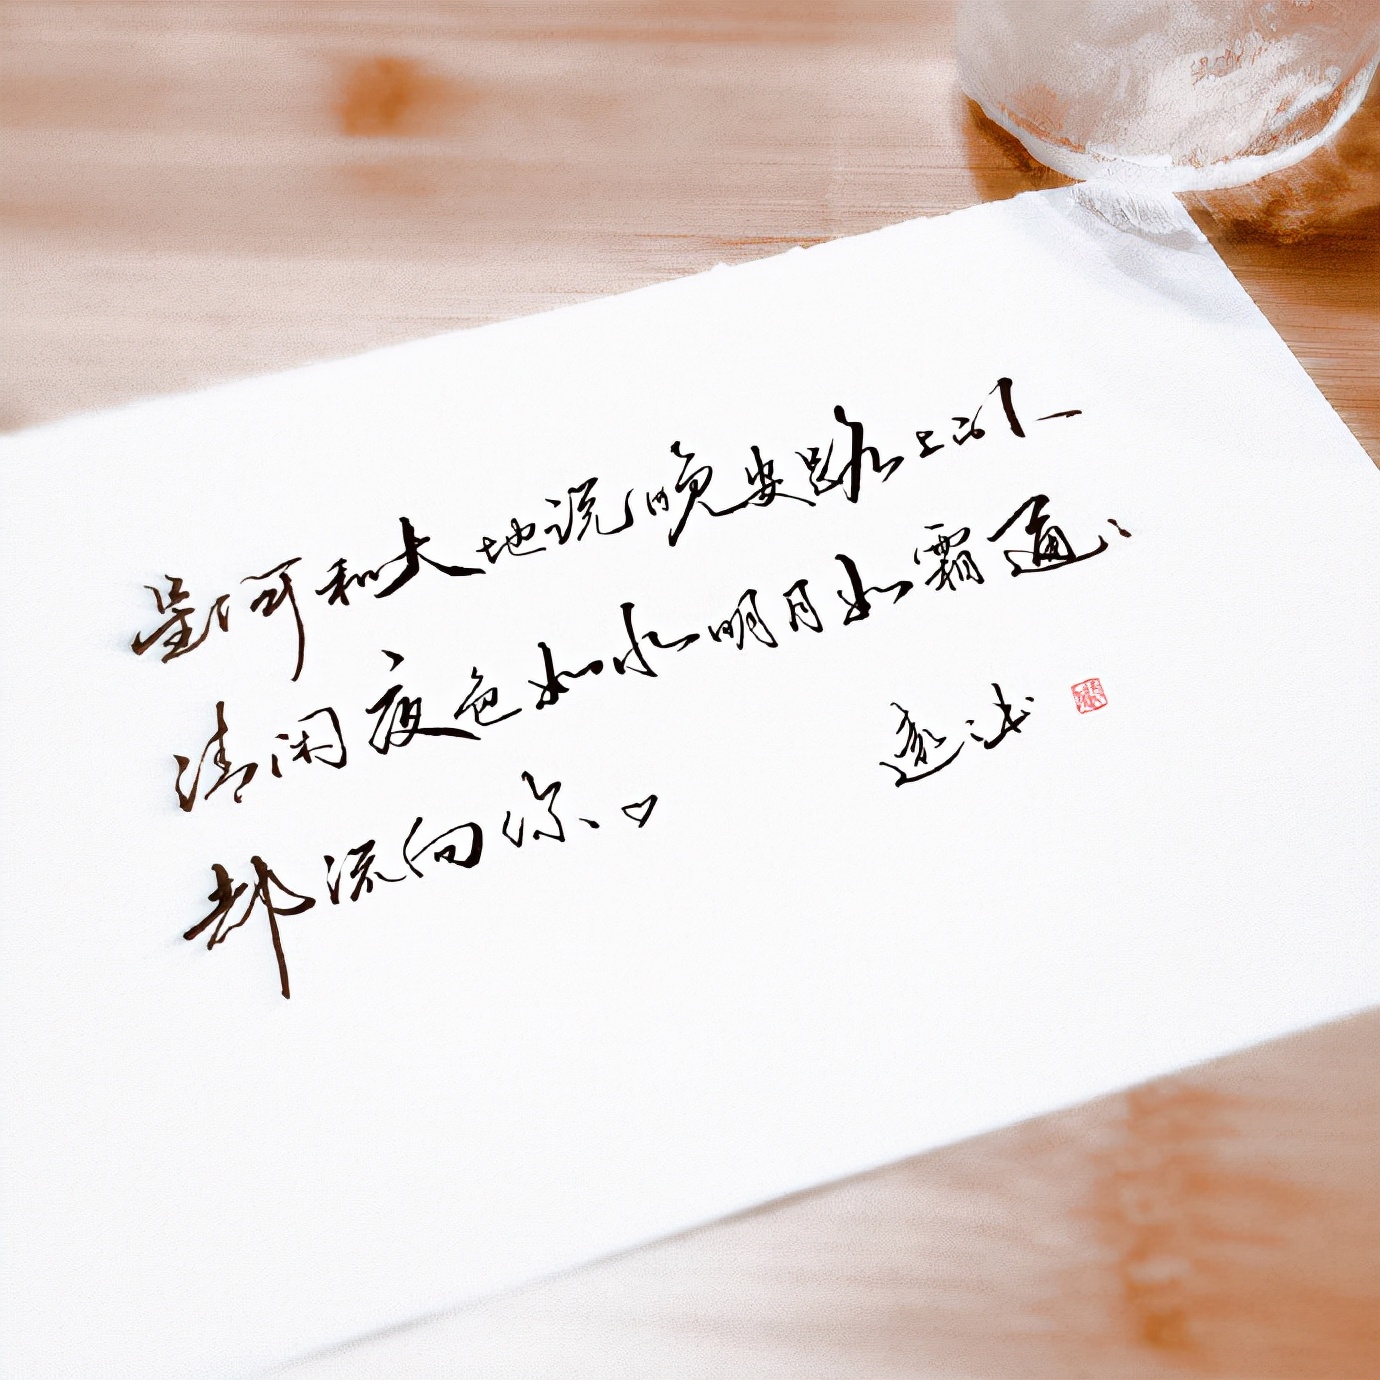 星河和大地说晚安路上的
清闲夜色如水明月如霜通通
都流向你、♡